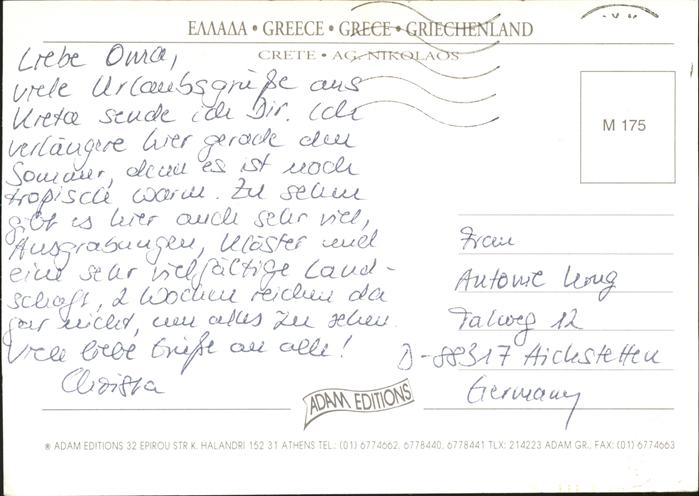 ΕΛΛΑΔΑ • GREECE • GRECE • GRIECHENLAND
CRETE • AG. NIKOLAOS
Liebe Oma,
viele Urlaubsgrüße aus
Kreta sende ich Dir. Ich
verlängere hier gerade den
Sommer, denn es ist noch
tropisch warm. Zu sehen
gibt es hier auch sehr viel,
Ausgrabungen, Klöster und
eine sehr vielfältige Land-
schaft, 2 Wochen reichen da
gar nicht, um alles zu sehen.
Viele liebe Grüße an alle!
Christa
M 175
Frau
Antonie
Talweg 12
D-88317 Aichstetten
Germany
ADAM EDITIONS
® ADAM EDITIONS 32 EPIROU STR K. HALANDRI 152 31 ATHENS TEL.: (01) 6774662, 6778440, 6778441 TLX: 214223 ADAM GR., FAX: (01) 6774663